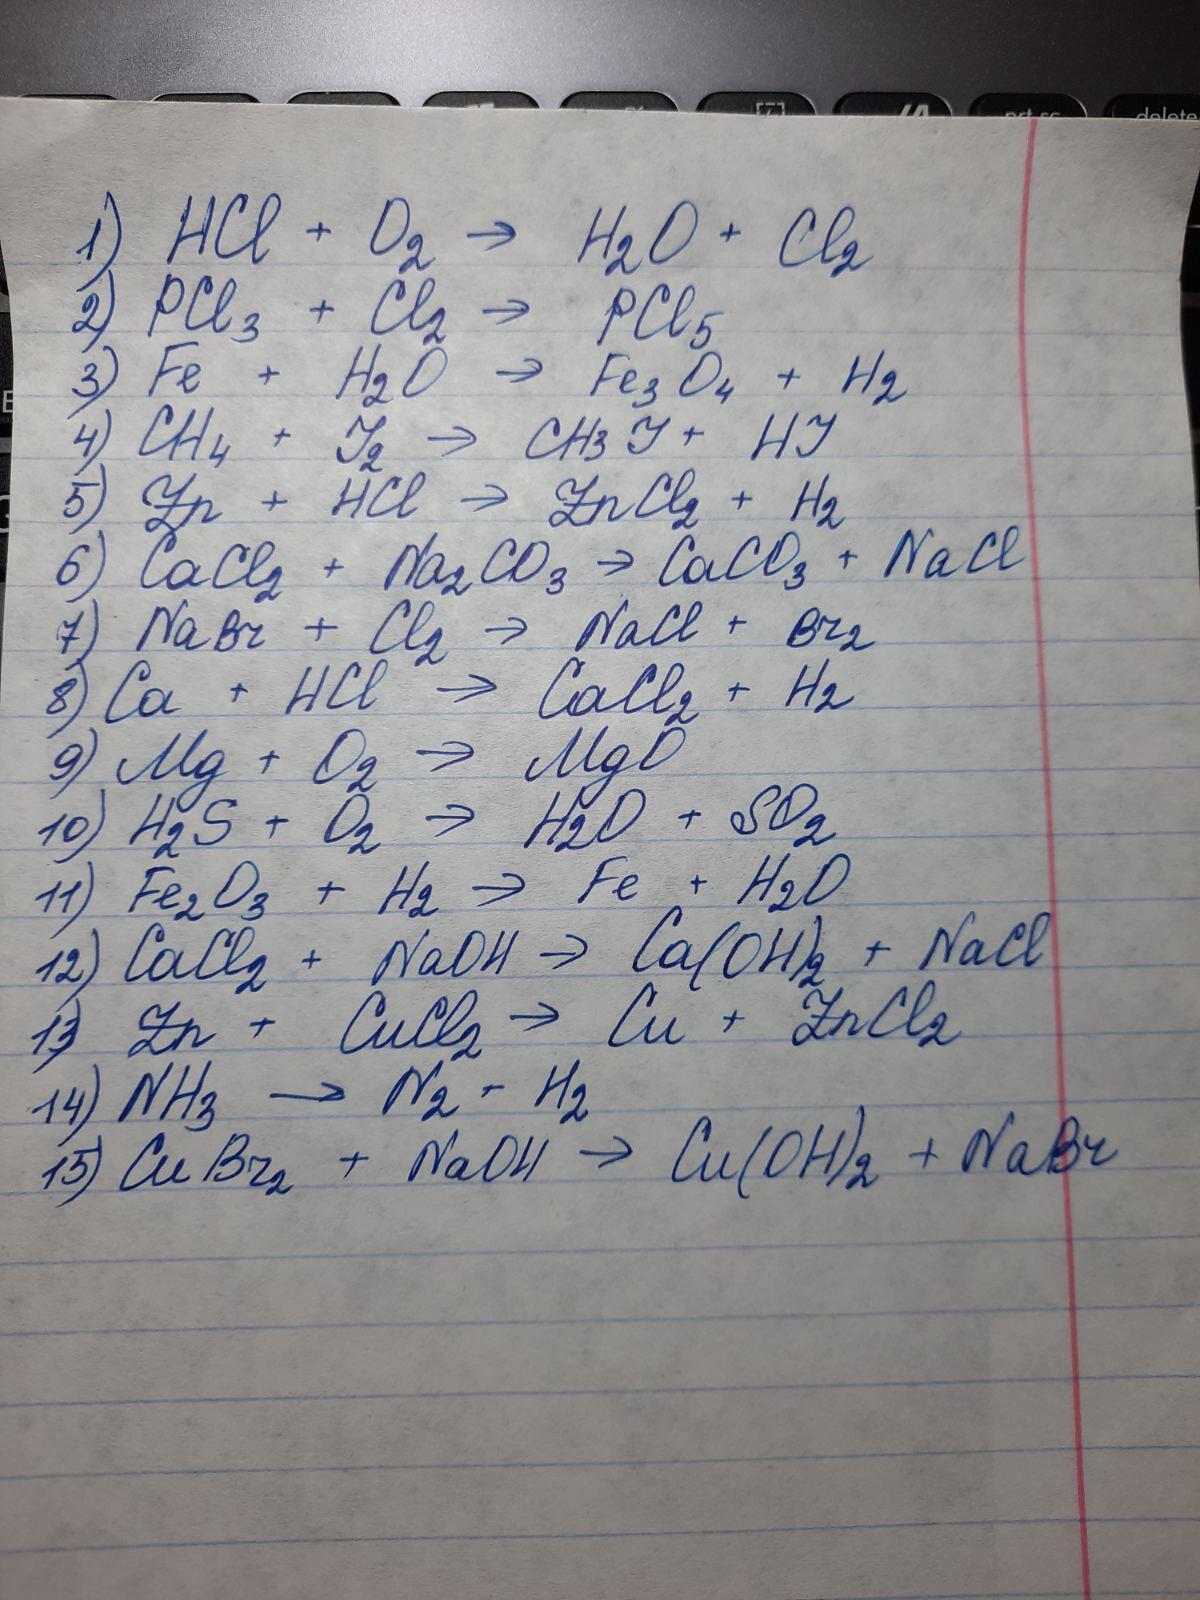 prt sc
delete
1) HCl + O2 → H2O + Cl2
2) PCl3 + Cl2 → PCl5
3) Fe + H2O → Fe3O4 + H2
4) CH4 + J2 → CH3J + HJ
5) Zn + HCl → ZnCl2 + H2
6) CaCl2 + Na2CO3 → CaCO3 + NaCl
7) NaBr + Cl2 → NaCl + Br2
8) Ca + HCl → CaCl2 + H2
9) Mg + O2 → MgO
10) H2S + O2 → H2O + SO2
11) Fe2O3 + H2 → Fe + H2O
12) CaCl2 + NaOH → Ca(OH)2 + NaCl
13) Zn + CuCl2 → Cu + ZnCl2
14) NH3 → N2 + H2
15) CuBr2 + NaOH → Cu(OH)2 + NaBr